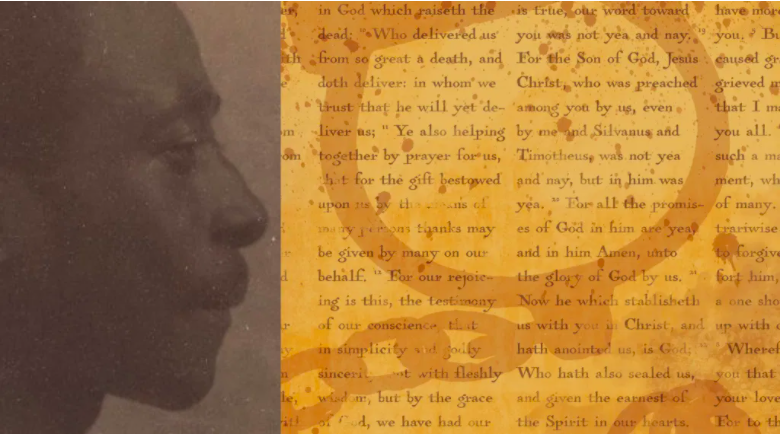 in God which raiseth the
dead: ¹⁰ Who delivered us
from so great a death, and
doth deliver: in whom we
trust that he will yet de-
liver us; ¹¹ Ye also helping
together by prayer for us,
that for the gift bestowed
upon us by the means of
many persons thanks may
be given by many on our
behalf. ¹² For our rejoic-
ing is this, the testimony
of our conscience, that
in simplicity and godly
sincerity, not with fleshly
wisdom, but by the grace
of God, we have had our
is true, our word toward
you was not yea and nay. ¹⁹
For the Son of God, Jesus
Christ, who was preached
among you by us, even
by me and Silvanus and
Timotheus, was not yea
and nay, but in him was
yea. ²⁰ For all the promis-
es of God in him are yea,
and in him Amen, unto
the glory of God by us. ²¹
Now he which stablisheth
us with you in Christ, and
hath anointed us, is God;
Who hath also sealed us,
and given the earnest of
the Spirit in our hearts.
have mor
you. Bu
caused gr
grieved m
that I m
you all.
such a m
ment, wh
of many.
trariwise
to forgive
fort him,
a one sho
up with
Wheref
you that
your love
For to th